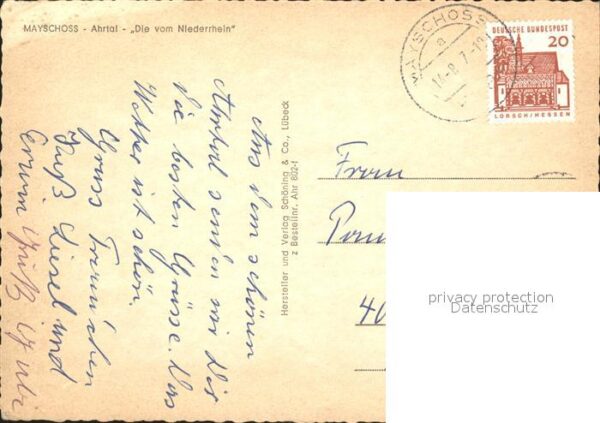 MAYSCHOSS - Ahrtal - „Die vom Niederrhein"
MAYSCHOSS
a
14.8.7-19
DEUTSCHE BUNDESPOST
20
LORSCH/HESSEN
Aus dem schönen
Ahrtal senden wir Dir
die besten Grüsse. Das
Wetter ist schön.
Gruss
Gruß Liesel und
Erwin
Hersteller und Verlag Schöning & Co., Lübeck
Z Bestellnr. Ahr 802-1
Frau
40
privacy protection
Datenschutz